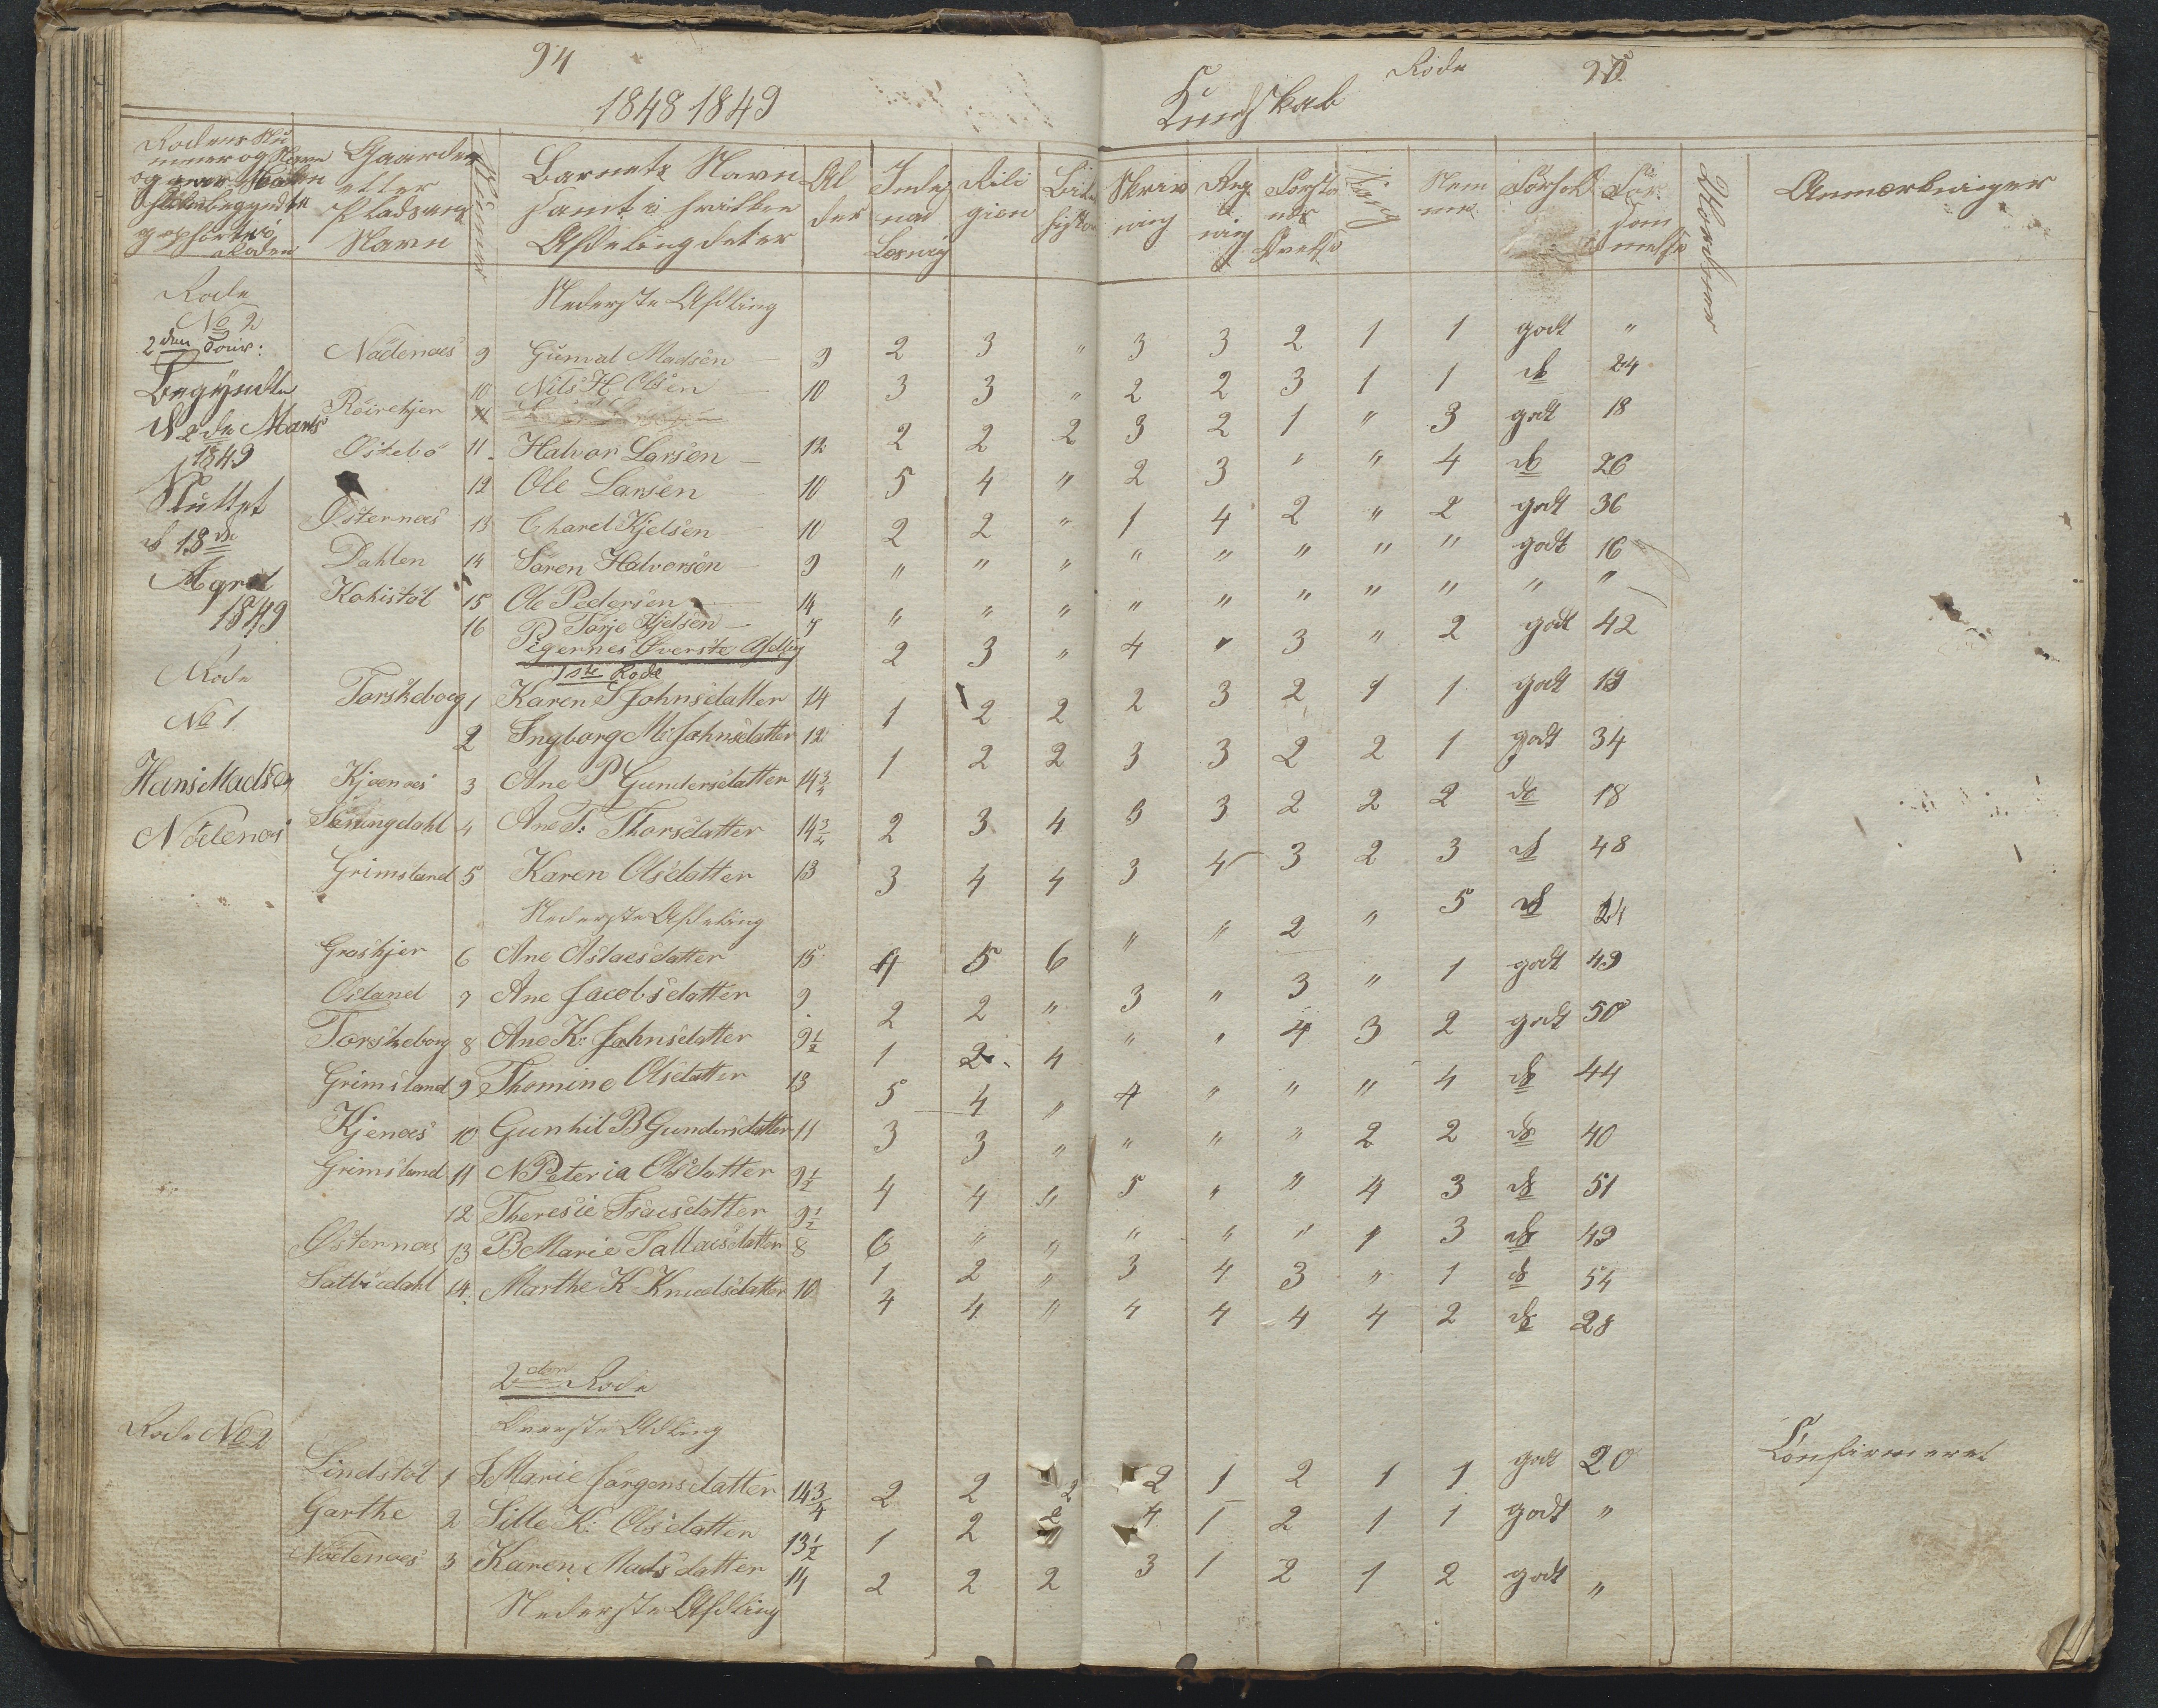 94
1848 1849
Kundskab
Rode
95
Rodens Nu
mer og Navn
Gaardens
eller
Pladsens
Navn
Numer
Barnets Navn
samt i hvilken
Afdeling det er
Al
der
Inden
ad
Læsning
Reli
gion
Bibel
histori
Skriv
ning
Reg
ning
Forstan
ds
Øvelse
Sang
Nem
me
Forhold
For
søm
melse
Anmærkninger
Rode
No 2
2den Tour:
Begyndte
d 2de Marts
1849
Sluttet
d 18de
April
1849
Nederste Afdling
Nødenæs 9 Gunval Madsen 9 2 3 " 3 3 2 1 1 godt "
10 Nils H Olsen 10 3 3 " 2 2 3 1 1 do 24
Röirekjer
Östebö 11 Halvor Larsen 12 2 2 2 3 2 1 " 3 godt 18
12 Ole Larsen 10 5 4 " 2 3 " " 4 do 26
Østernæs 13 Charel Kjelsen 11 2 2 " 1 4 2 " 2 godt 36
Dahlen 14 Søren Halvorsen 9 " " " " " " " " godt 16
Kohistöl 15 Ole Pedersen 14 " " " " " " " " " "
16 Torje Kjelsen 7 2 3 " 4 " 3 " 2 godt 42
Pigernes Øverste Afdeling
1ste Rode
Rode
No 1
Hans Madsen
Nödenæs
Torskeboeg 1 Karen S Johnsdatter 14 1 2 2 2 3 2 1 1 godt 19
2 Ingborg M: Johnsdatter 12 1 2 2 3 3 2 2 1 godt 34
Kjænæs 3 Ane P Gundersdatter 14 3/4 2 3 4 3 3 2 2 2 do 18
Töningdahl 4 Ane T: Thorsdatter 14 3/4 3 4 4 3 4 3 2 3 do 48
Grimsland 5 Karen Olsdatter 13
Nederste Afdeling
" " 2 " 5 do 24
Groskjer 6 Ane Aslacsdatter 15 4 5 6
Osland 7 Ane Jacobsdatter 9 2 2 " 3 " 3 " 1 godt 49
Torskeborg 8 Ane K: Johnsdatter 9 1/2 1 2 4 " " 4 3 2 godt 50
Grimsland 9 Thomine Olsdatter 13 5 4 " 4 " " " 4 do 44
Kjenæs 10 Gunhil B Gundersdatter 11 3 3 " " " " 2 2 do 40
Grimsland 11 N Peteria Olsdatter 9 1/2 4 4 " 5 " " 4 3 do 51
12 Theresie Isacsdatter 9 1/2 6 " " " " " 1 3 do 49
Østernæs 13 B Marie Tallacsdatter 8 1 2 " 3 4 3 " 1 do 54
14 Marthe K Knudsdatter 10 4 4 " 4 4 4 4 2 do 28
2den Rode
Øverste Afdling
Rode No 2
Lindstöl 1 S Marie Jørgensdatter 14 3/4 2 2 2 2 1 2 1 1 godt 20 Confirmeret
Garthe 2 Sille K: Olsdatter 13 1/2 1 2 2 4 1 2 1 1 godt "
Nødenæs 3 Karen Madsdatter 14 2 2 2 3 1 2 1 2 godt "
Nederste Afdling